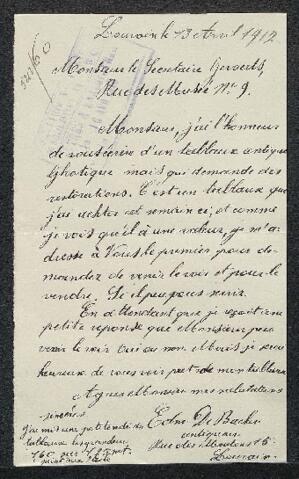 Louvain le 13 Avril 1912
Monsieur le Secretaire Gevaerts,
Rue des Musée N° 9.
Monsieur, j'ai l'honneur
de vous écrire d'un tableau antique
Ghotique mais qui demande des
restorations. C'est un tableau que
j'ai achter cet semain ci, et comme
je vois qu'el à une valeur, je m'a-
dresse à Vous le premier pour de-
mandez de venir le voir et pour le
vendre. Si il peu pous
En attendant que je reçoit une
petite reponse que Monsieur peu
venir le voir oui ou non. Mais je serai
heureux de vous voir mon tableau
Agrees Monsieur mes salutations
sinceres
Edm De Backer
antiquair
Rue des Moutons 15.
Louvain.
j'ai mis une petite
tableau la grandeur
160 sur